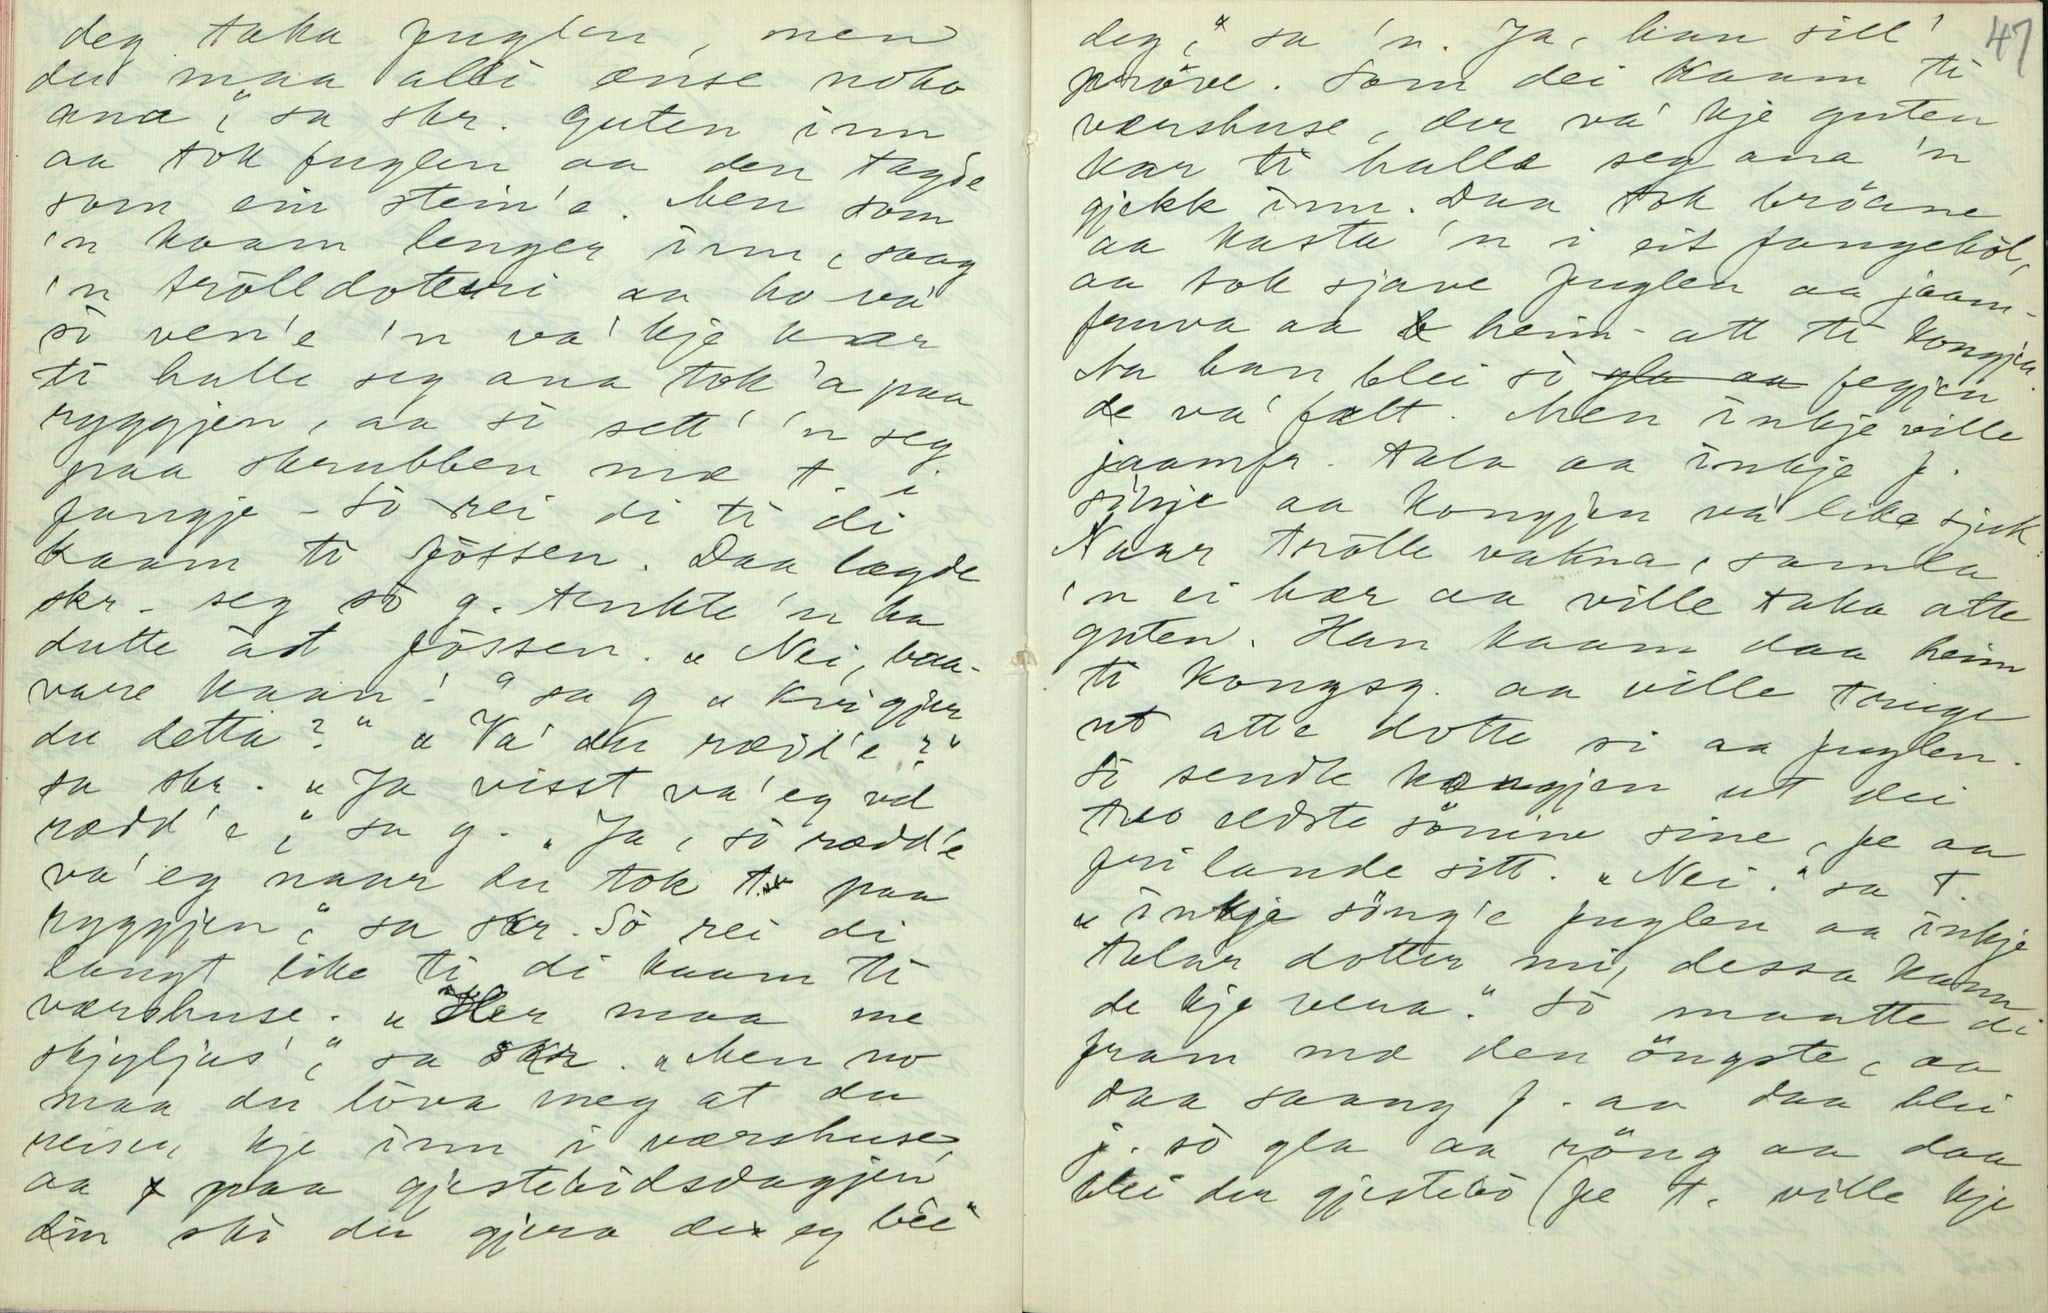 deg taka fuglen, men
du maa alli ænse noko
ana," sa skr. Guten inn
aa tok fuglen aa den tagde
som ein stein'e. Men som
'n kaam lenger inn, saag
'n trölldotteri aa ho va'
sò ven'e 'n va' kje kar
ti halle seg ana tok 'a paa
ryggjen, aa sò sett' 'n seg
paa skrubben mæ t. i
fangje – sò rei di ti di
kaam ti fössen. Daa lægde
skr. seg sò g. tenkte 'n ha
dutte åt fössen. „Nei, baa-
vare kaan!" sa g „Kvi gjer
du detta?" „Va' du rædd'e?"
sa skr. „Ja visst va' eg vel
rædd'e," sa g. „Ja, sò rædd'e
va' eg naar du tok t. paa
ryggjen," sa skr. Sò rei di
langt like ti di kaam ti
værshuse. „Her maa me
skjyljas'," sa skr. „Men no
maa du löva meg at du
reiser kje inn i værshuse,
aa paa gjestebòdsdagjen
din ska du gjera de eg bèe"
47
deg," sa 'n. Ja, han sill'
pröve. Som dei kaam ti
værshuse, der va' kje guten
kar ti halle seg ana 'n
gjekk inn. Daa tok bröane
aa kasta 'n i eit fangehòl,
aa tok sjave fuglen aa jaam-
fruva aa heim-att ti kongjen.
Na han blei sò gla aa fegjen
de va' fælt. Men inkje ville
jaamfr. tala aa inkje f.
sònje aa kongjen va' like sjuk.
Naar trölle vakna, samla
'n ei hær aa ville taka atte
guten. Han kaam daa heim
ti kongsg. aa ville tvinge
ut atte dotte si aa fuglen.
Sò sendte kongjen ut dei
two eldste sönine sine, fe aa
fri lande sitt. „Nei." sa t.
„inkje söng'e fuglen aa inkje
talar dotter mi, dessa kann
de kje vera." Sò maatte di
fram mæ den öngste, aa
daa saang f. aa daa blei
j. sò gla aa röng aa daa
blei der gjestebò (fe t. ville kje